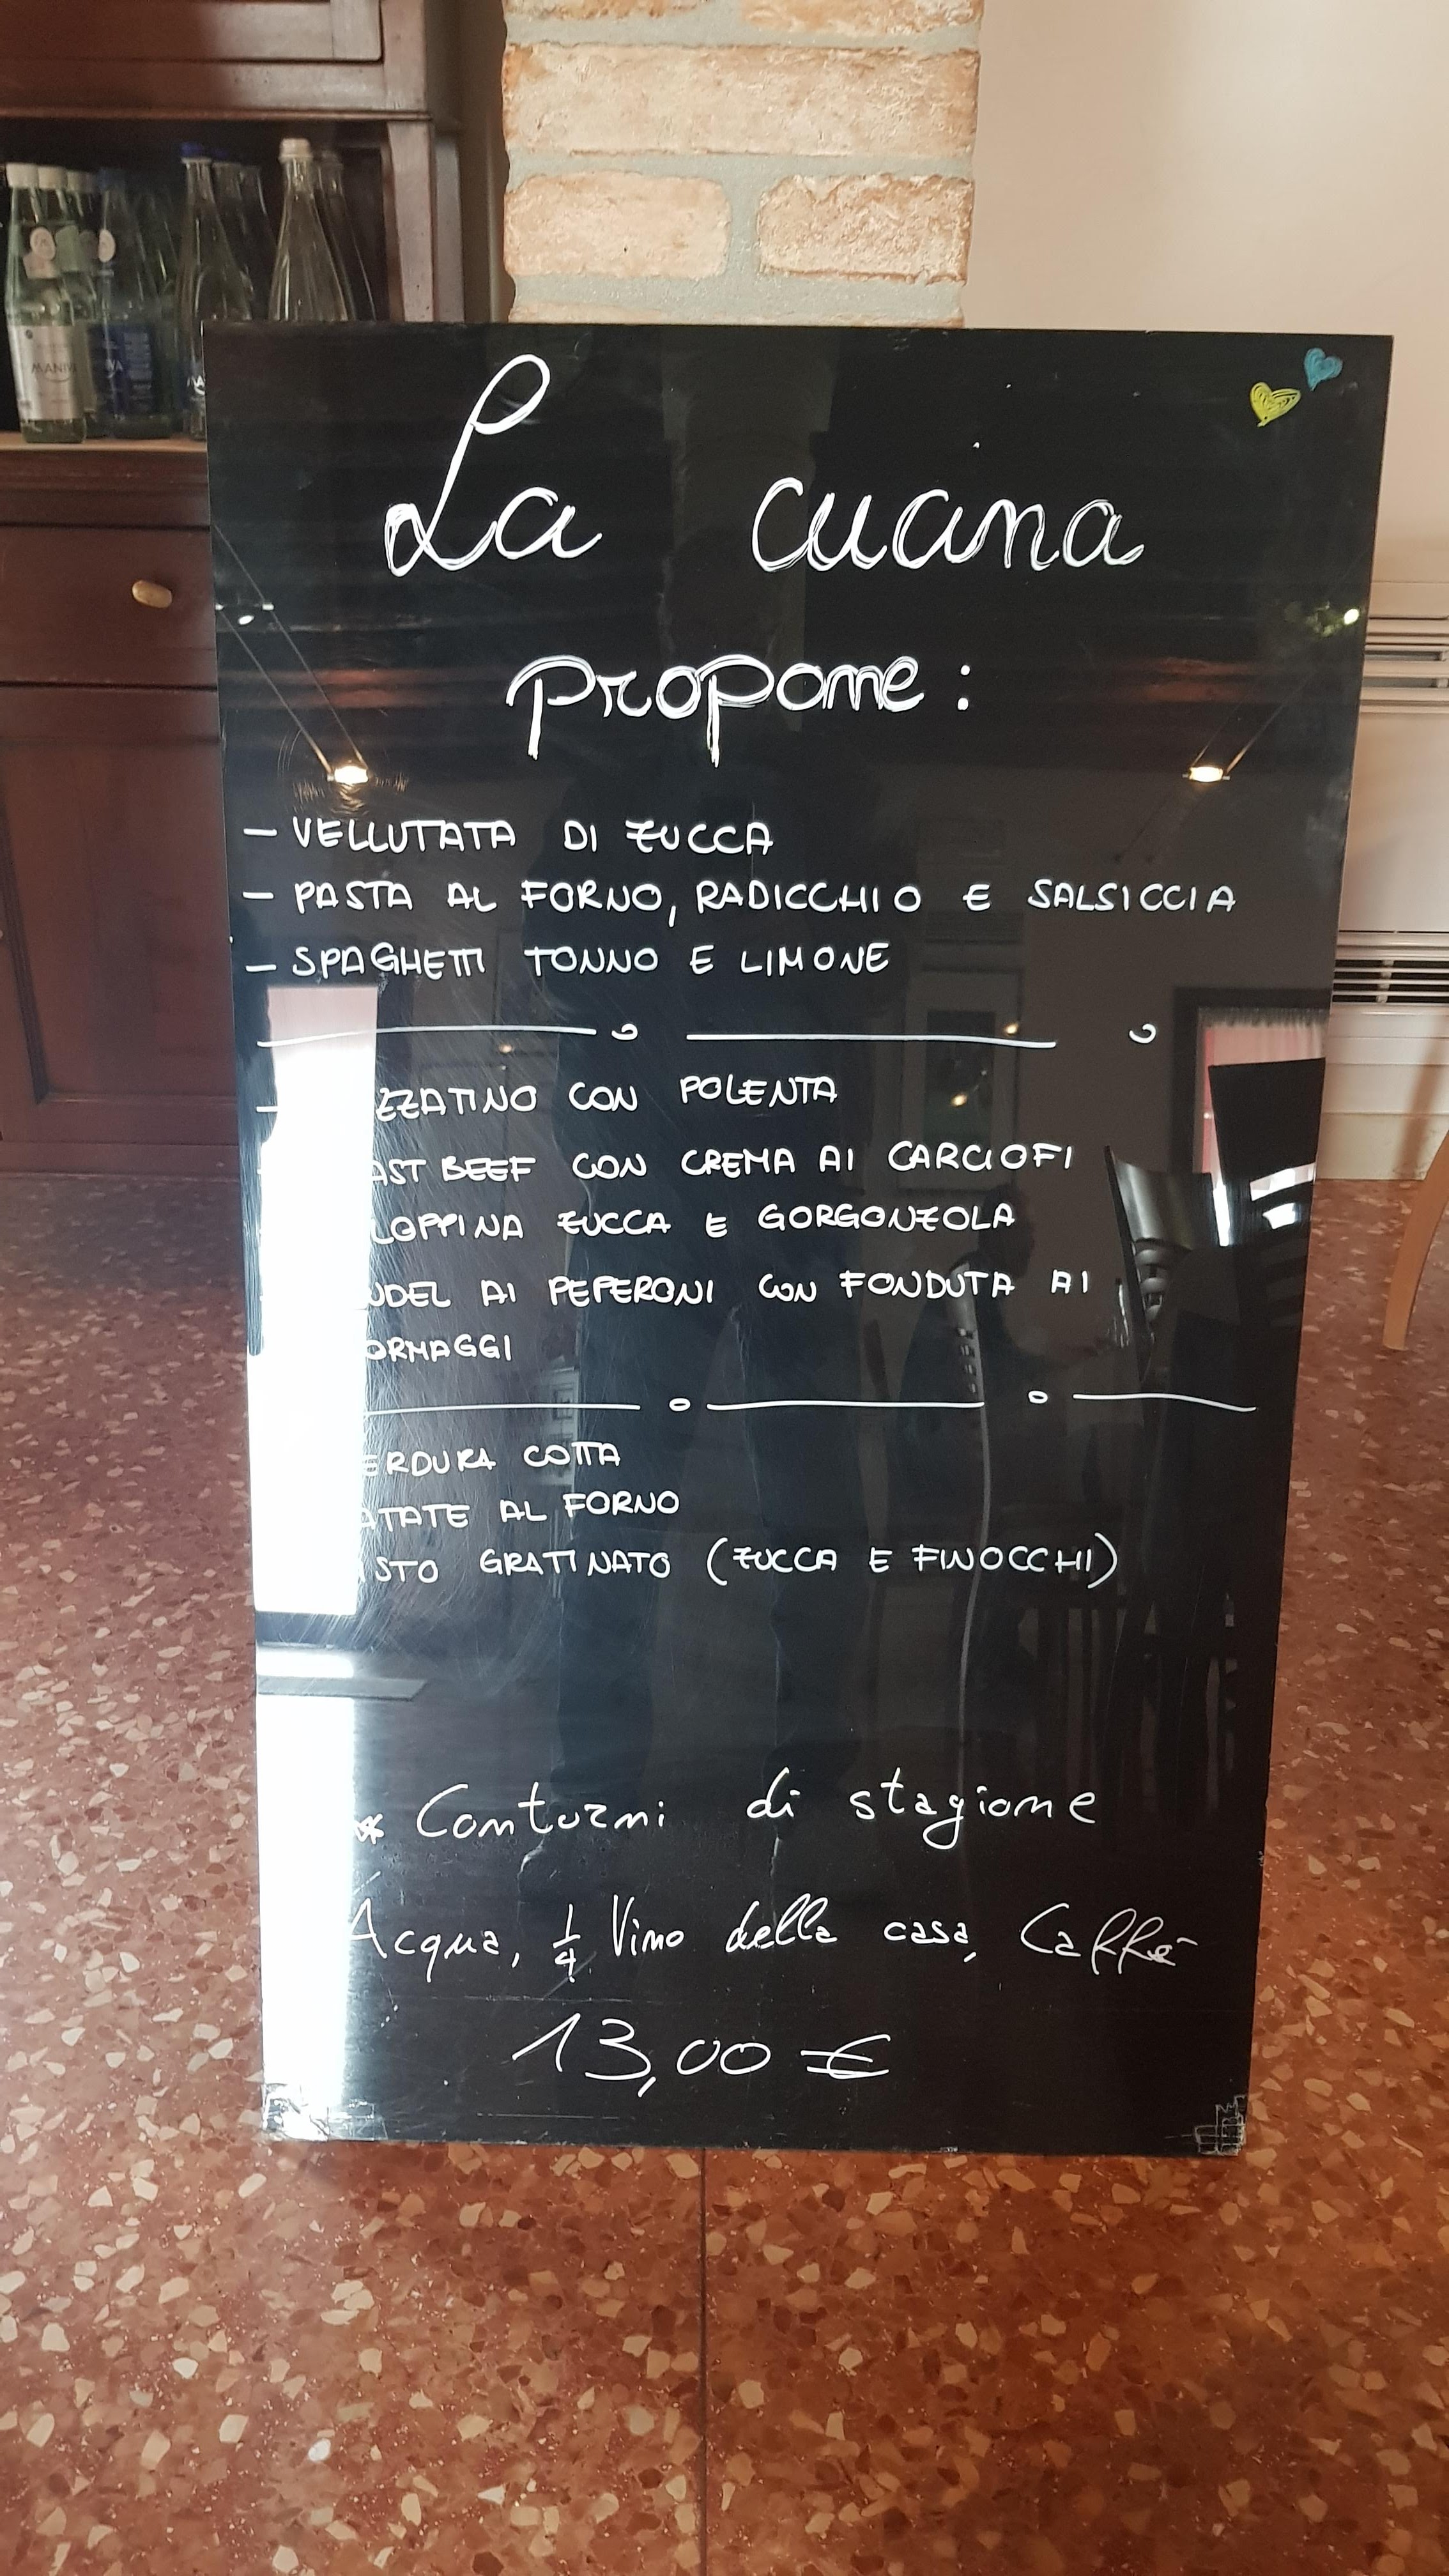 MANIVA
La cucina
propone:
- VELLUTATA DI ZUCCA
- PASTA AL FORNO, RADICCHIO E SALSICCIA
- SPAGHETTI TONNO E LIMONE
- CON POLENTA
BEEF CON CREMA AI CARCIOFI
ZUCCA E GORGONZOLA
AI PEPERONI CON FONDUTA AI
COTTA
AL FORNO
GRATINATO (ZUCCA E FINOCCHI)
* Contorni di stagione
Acqua, 1/4 Vino della casa, Caffè
13,00 €